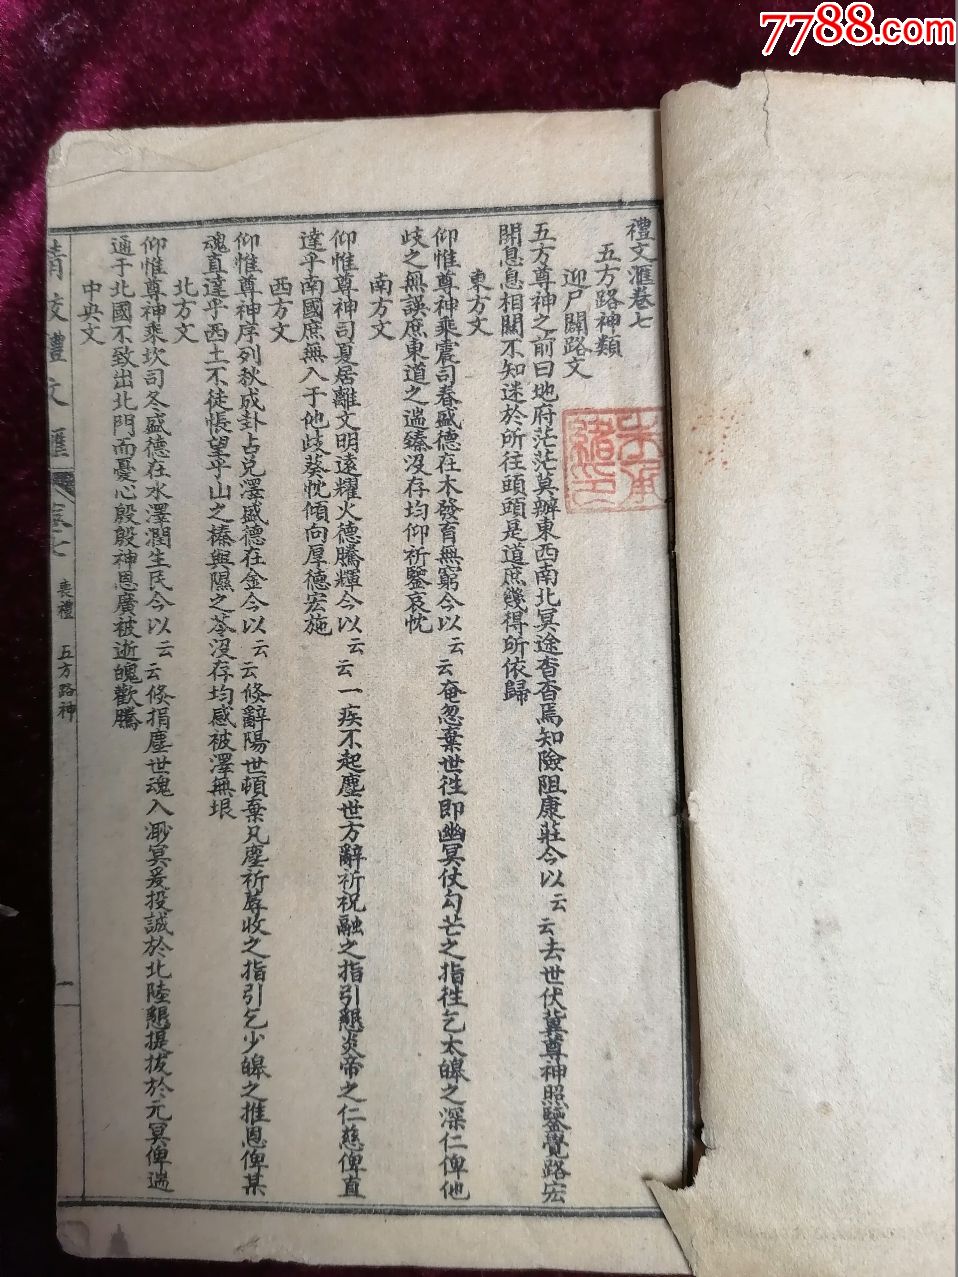 7788.com
禮文滙卷七
五方路神類
迎尸闢路文
五方尊神之前曰地府茫茫莫辦東西南北冥途杳杳焉知險阻康莊今以云云去世伏冀尊神照鑒覺路宏
開息息相關不知迷於所往頭頭是道庶幾得所依歸
東方文
仰惟尊神乘震司春盛德在木發育無窮今以云云奄忽棄世徃即幽冥仗勾芒之指徃乞太皞之深仁俾他
歧之無誤庶東道之遄臻沒存均仰祈鑒哀忱
南方文
仰惟尊神司夏居離文明遠耀火德騰輝今以云云一疾不起塵世方辭祈祝融之指引懇炎帝之仁慈俾直
達乎南國庶無入于他歧葵忱傾向厚德宏施
西方文
仰惟尊神序列秋成卦占兌澤盛德在金今以云云倏辭陽世頓棄凡塵祈蓐收之指引乞少皞之推恩俾某
魂直達乎西土不徒悵望乎山之榛與隰之苓沒存均感被澤無垠
北方文
仰惟尊神乘坎司冬盛德在水澤潤生民今以云云倏捐塵世魂入渺冥爰投誠於北陸懇提拔於元冥俾遄
通于北國不致出北門而憂心殷殷神恩廣被逝魄歡騰
中央文
校禮文滙 卷七 喪禮 五方路神 一